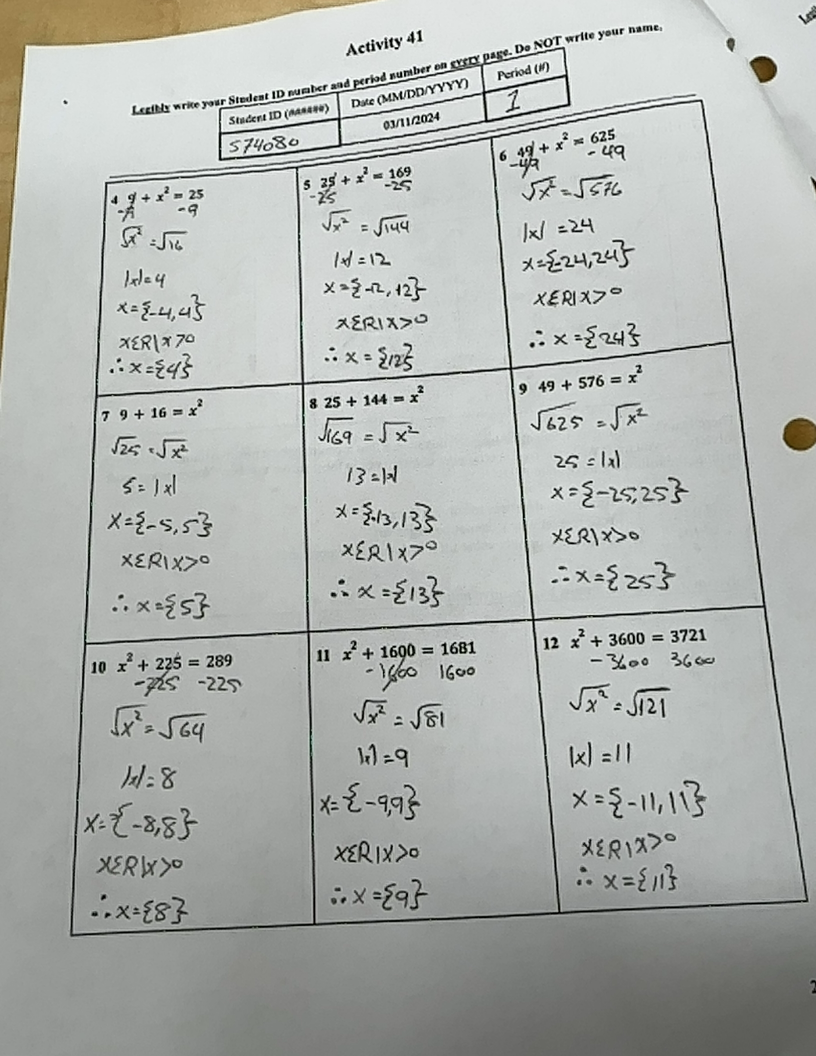 Activity 41
Legibly write your Student ID number and period number on every page. Do NOT write your name.
Student ID (######) Date (MM/DD/YYYY) Period (#)
574080 03/11/2024 1
4 9 + x² = 25
-9 -9
√x² = √16
|x|=4
x={-4,4}
xεR|x>0
∴x={4}
5 25 + x² = 169
-25 -25
√x² = √144
|x|=12
x={-12,12}
xεR|x>0
∴ x={12}
6 49 + x² = 625
-49 -49
√x² = √576
|x| = 24
x={-24,24}
xεR|x>0
∴ x={24}
7 9 + 16 = x²
√25 = √x²
5=|x|
x={-5,5}
xεR|x>0
∴ x={5}
8 25 + 144 = x²
√169 = √x²
13=|x|
x={-13,13}
xεR|x>0
∴ x={13}
9 49 + 576 = x²
√625 = √x²
25=|x|
x={-25,25}
xεR|x>0
∴ x={25}
10 x² + 225 = 289
-225 -225
√x² = √64
|x|=8
x={-8,8}
xεR|x>0
∴x={8}
11 x² + 1600 = 1681
-1600 1600
√x² = √81
|x|=9
x={-9,9}
xεR|x>0
∴x={9}
12 x² + 3600 = 3721
-3600 3600
√x² = √121
|x|=11
x={-11,11}
xεR|x>0
∴ x={11}